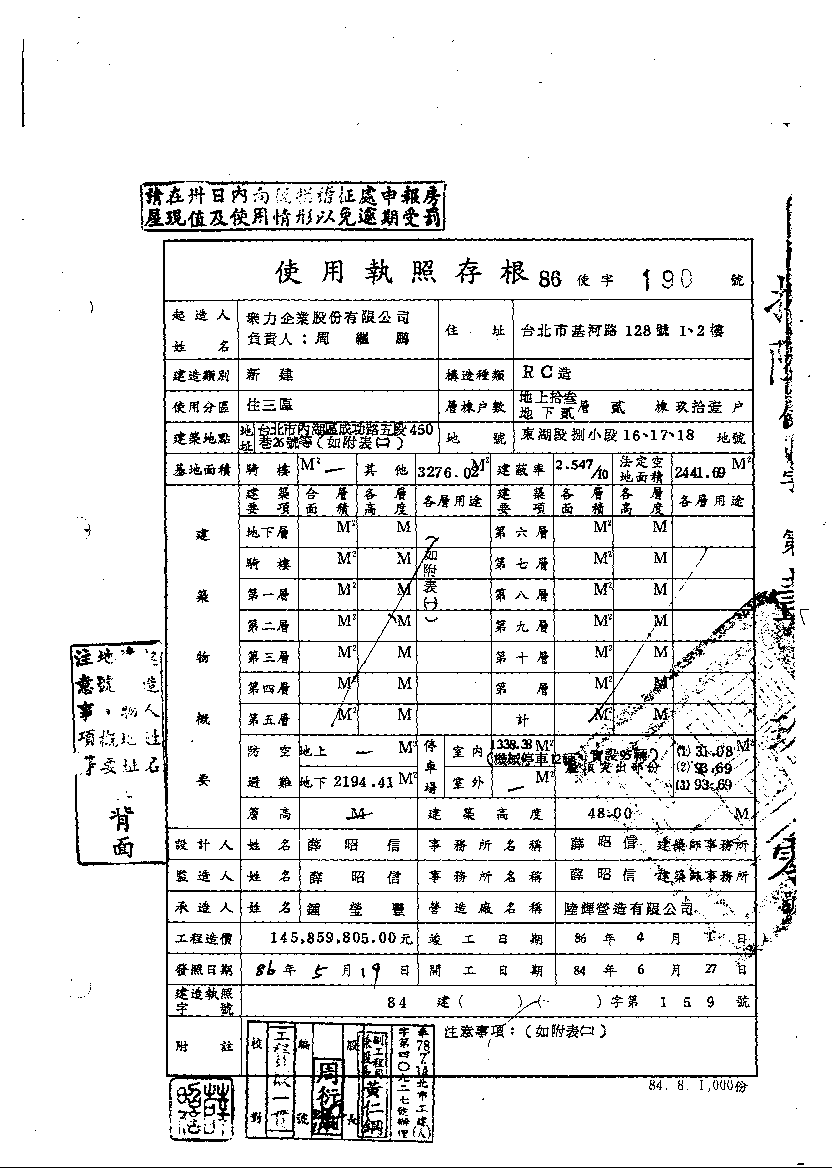 請在卅日內向稅捐稽征處申報房
屋現值及使用情形以免逾期受罰
使用執照存根 86 使字 190 號
起造人姓名 樂力企業股份有限公司 負責人：周繼鵬 住址 台北市基河路128號1、2樓
建造類別 新建 構造種類 RC造
使用分區 住三區 層棟戶數 地上拾叁地下貳層 貳棟玖拾壹戶
建築地點 地址 台北市內湖區成功路五段450巷26號等(如附表㈡) 地號 東湖段捌小段16、17、18 地號
基地面積 騎樓 M² — 其他 3276.02 M² 建蔽率 2.547/10 法定空地面積 2441.69 M²
建築要項 各層面積 各層高度 各層用途 建築要項 各層面積 各層高度 各層用途
建築物概要
地下層 M² M (如附表㈠) 第六層 M² M
騎樓 M² M 第七層 M² M
第一層 M² M 第八層 M² M
第二層 M² M 第九層 M² M
第三層 M² M 第十層 M² M
第四層 M² M 第 層 M² M
第五層 M² M 計 M² M
防空避難 地上 — M² 停車場 室內 1338.38 M² (1) 31.08 M²
(機械停車12輛, 實設95輛) 屋頂突出部份 (2) 93.69
地下 2194.41 M² 室外 — M² (3) 93.69
簷高 M 建築高度 48.00 M
設計人 姓名 薛昭信 事務所名稱 薛昭信建築師事務所
監造人 姓名 薛昭信 事務所名稱 薛昭信建築師事務所
承造人 姓名 鍾瑩豐 營造廠名稱 陸輝營造有限公司
工程造價 145,859,805.00元 竣工日期 86年4月1日
發照日期 86年5月19日 開工日期 84年6月27日
建造執照字號 84 建( )( )字第159號
附註 注意事項：(如附表㈡)
校對
編號
周衍
股長
副工程司
黃仁綱
84.8.1,000份
注意事項
背面